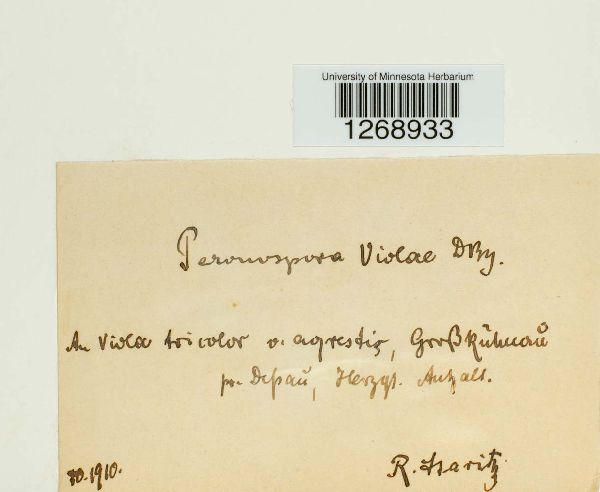 University of Minnesota Herbarium
1268933
Peronospora Violae DBy.
An Viola tricolor v. agrestis, Großkühnau
pr. Deßau, Herzgt. Anhalt.
10.1910.
R. Staritz